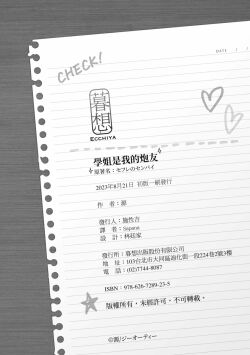 DATE / /
CHECK!
暮想
ECCHIYA
學姐是我的炮友
原著名：セフレのセンパイ
2023年8月21日 初版一刷發行
作 者：源
發行人：施性吉
譯 者：Sapana
設 計：林廷家
發行所：暮想出版股份有限公司
地 址：103台北市大同區迪化街一段224巷2號3樓
電 話：(02)7744-8087
ISBN：978-626-7289-23-5
版權所有，未經許可，不可轉載。
©源/ジーオーティー